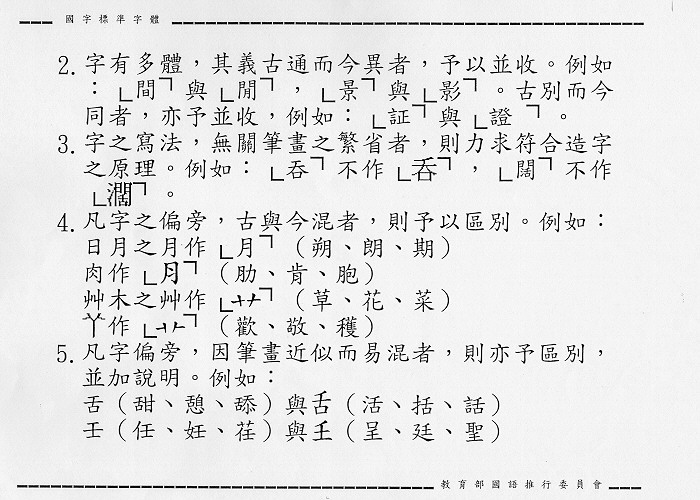 國字標準字體
2. 字有多體，其義古通而今異者，予以並收。例如
：「間」與「閒」，「景」與「影」。古別而今
同者，亦予並收，例如：「証」與「證」。
3. 字之寫法，無關筆畫之繁省者，則力求符合造字
之原理。例如：「吞」不作「呑」，「闊」不作
「濶」。
4. 凡字之偏旁，古與今混者，則予以區別。例如：
日月之月作「月」（朔、朗、期）
肉作「⺼」（肋、肯、胞）
艸木之艸作「艹」（草、花、菜）
丫作「卝」（歡、敬、穫）
5. 凡字偏旁，因筆畫近似而易混者，則亦予區別，
並加說明。例如：
舌（甜、憩、舔）與舌（活、括、話）
壬（任、妊、荏）與𡈼（呈、廷、聖）
教育部國語推行委員會